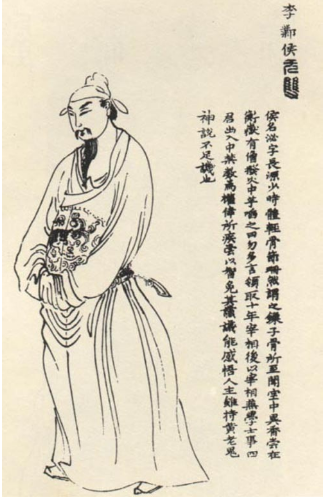 李鄴侯无雙
侯名泌字長源少時體輕骨節珊然謂之鎖子骨所至闇室中異香嘗在
衡嶽有僧撥火中芋啗之曰勿多言領取十年宰相後以宰相兼學士事四
君出入中禁數為權倖所疾嘗以智免其讜議能感悟人主雖持黃老鬼
神說不足譏也